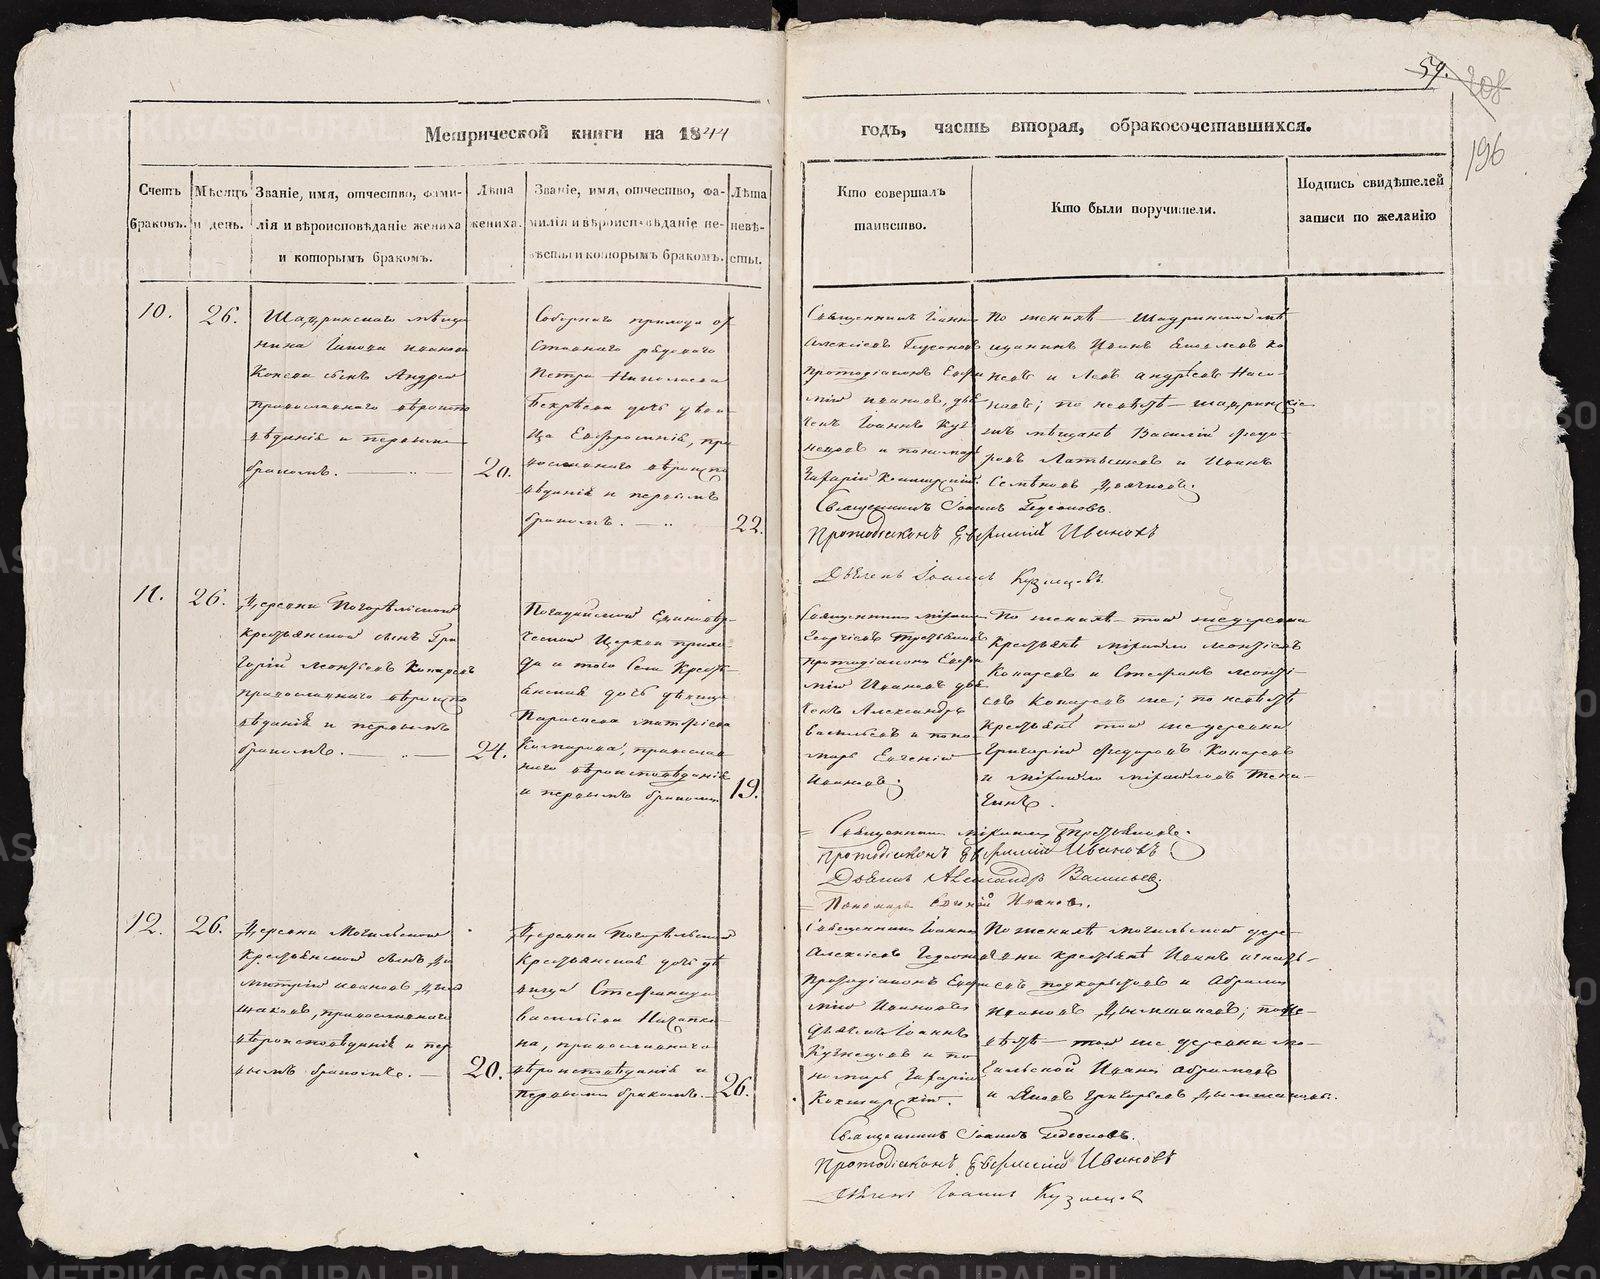 54.
208
196
Метрической книги на 1844
годъ, часть вторая, обракосочетавшихся.
Счетъ браковъ.
Мѣсяцъ и день.
Званіе, имя, отчество, фами-
лія и вѣроисповѣданіе жениха
и которымъ бракомъ.
Лѣта
жениха.
Званіе, имя, отчество, фа-
милія и вѣроисповѣданіе не-
вѣсты и которымъ бракомъ.
Лѣта
невѣ-
сты.
Кто совершалъ
таинство.
Кто были поручители.
Подпись свидѣтелей
записи по желанію
10.
26.
Шадринскаго мѣща
нина Іакова Иванова
Конева сынъ Андрей
православнаго вѣроиспо
вѣданія и первымъ
бракомъ.
20.
Соборнаго прихода от
ставнаго рядоваго
Петра Николаева
дочь дѣви
ца Евфросинія, пра
вославнаго вѣроиспо
вѣданія и первымъ
бракомъ.
22.
Священникъ Іоаннъ
Алексіевъ Гедеоновъ
протодіаконъ Евфи
мій Ивановъ, дья
чекъ Іоаннъ Куз
нецовъ и пономарь
По женихѣ — Шадринскій мѣ
щанинъ Иванъ Яковлевъ Ко
невъ и Левъ Андреевъ
по невѣстѣ — шадринскіе
мѣщане Василій Федо-
ровъ Латышевъ и Иванъ
Семеновъ
Священникъ Іоаннъ Гедеоновъ.
Протодіаконъ Евфимій Ивановъ
Дьячекъ Іоаннъ Кузнецовъ.
11.
26.
Деревни Погорѣльской
крестьянской сынъ Гри
горій Леонтьевъ Копаревъ
православнаго вѣроиспо
вѣданія и первымъ
бракомъ.
24.
Единовѣр-
ческой Церкви прихо-
да и того села Кресть
янская дочь дѣвица
Параскева
православ
наго вѣроисповѣданія
и первымъ бракомъ
19.
Священникъ Михаилъ
Георгіевъ Третьяковъ
протодіаконъ Евфи
мій Ивановъ дья
чекъ Александръ
Васильевъ и поно
марь Евгеній
Ивановъ.
По женихѣ — той же деревни
крестьяне Михайло Леонтьевъ
Копаревъ и Стефанъ Леонтьевъ
Копаревъ же; по невѣстѣ
крестьяне той же деревни
Григорій Федоровъ Копаревъ
и Михайло Михайловъ
Священникъ Михаилъ Третьяковъ.
Протодіаконъ Евфимій Ивановъ
Дьячекъ Александръ Васильевъ
Пономарь Евгеній Ивановъ.
12.
26.
Деревни Могильской
Крестьянской сынъ Ди
митрій Ивановъ Дым
шаковъ, православнаго
вѣроисповѣданія и пер
вымъ бракомъ.
20.
Деревни Погорѣльской
Крестьянская дочь дѣ
вица Стефанида
Васильева
православнаго
вѣроисповѣданія и
первымъ бракомъ.
26.
Священникъ Іоаннъ
Алексіевъ Гедеоновъ
Протодіаконъ Евфи
мій Ивановъ
дьячекъ Іоаннъ
Кузнецовъ и по
номарь
По женихѣ Могильской дере
вни крестьяне Иванъ
и Абрамъ
Ивановъ Дымшаковъ; по не-
вѣстѣ — той же деревни Мо-
гильской Иванъ Абрамовъ
и Яковъ Григорьевъ Дымшаковы.
Священникъ Іоаннъ Гедеоновъ.
Протодіаконъ Евфимій Ивановъ
Дьячекъ Іоаннъ Кузнецов
METRIKI.GASO-URAL.RU